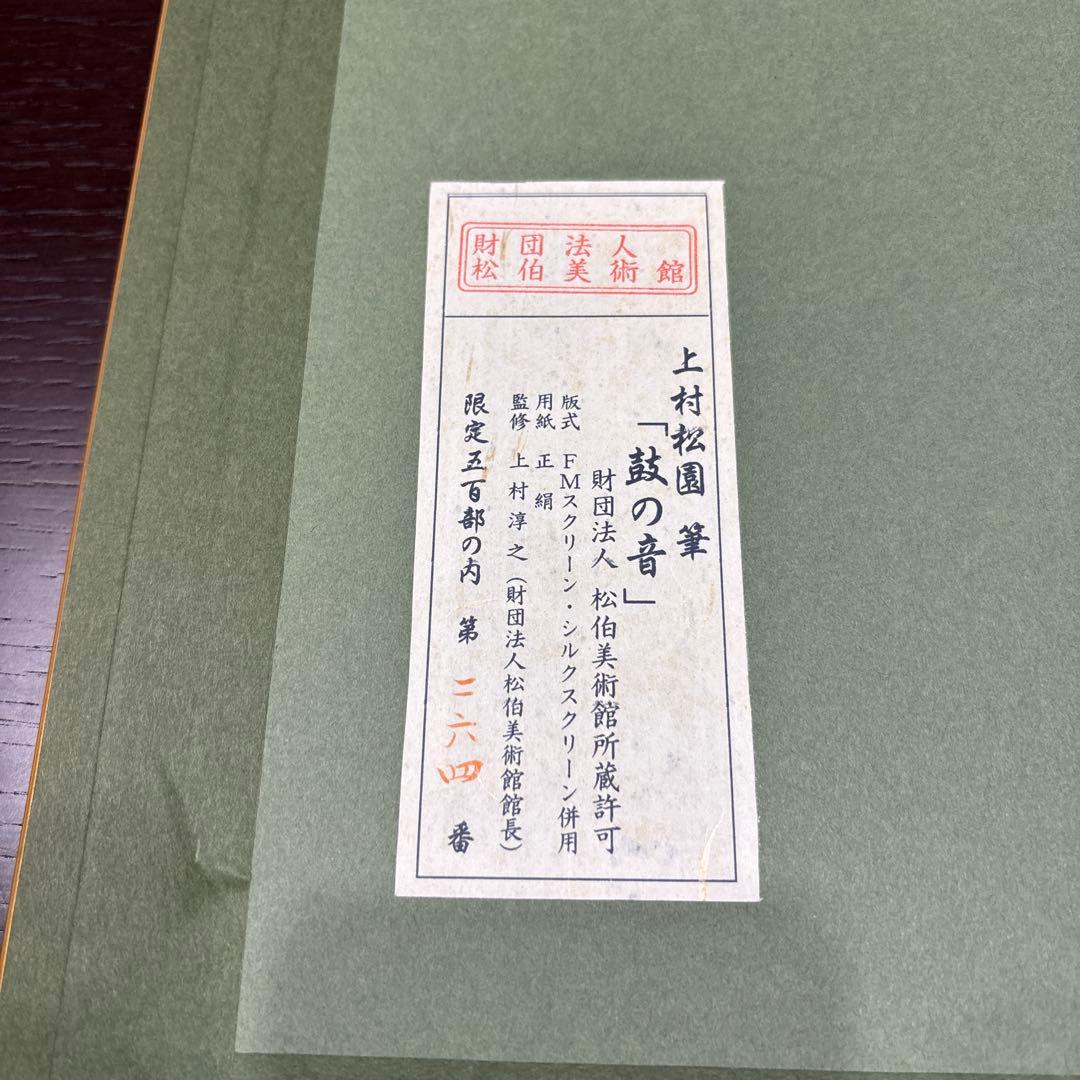 財団法人
松伯美術館
上村松園 筆
「鼓の音」
財団法人 松伯美術館所蔵許可
版式 FMスクリーン・シルクスクリーン併用
用紙 正絹
監修 上村淳之（財団法人松伯美術館館長）
限定五百部の内 第 二六四 番